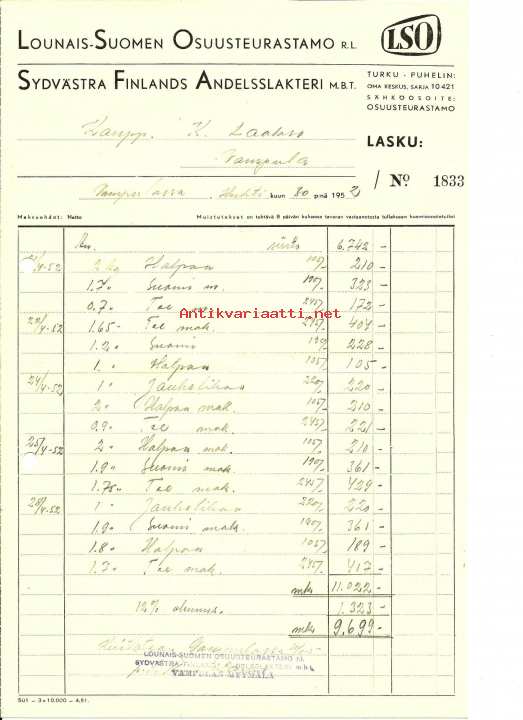 LOUNAIS-SUOMEN OSUUSTEURASTAMO R.L.
LSO
SYDVÄSTRA FINLANDS ANDELSSLAKTERI M.B.T.
TURKU - PUHELIN:
OMA KESKUS, SARJA 10421
SÄHKÖOSOITE:
OSUUSTEURASTAMO
Kaupp. K. Laakso
LASKU:
Vampula
/ No 1833
Vampulassa Huhti kuun 30 p:nä 1952
Maksuehdot: Netto Muistutukset on tehtävä 8 päivän kuluessa tavaran vastaanotosta tullakseen huomioonotetuiksi
siirto 6.742 -
21/4-52 2 kg Halpaa 105/- 210 -
1.7 " Suomi m. 190/- 323 -
0.7 " Tee m. 245/- 172 -
Antikvariaatti.net
22/4-52 1.65 - Tee mak. 245/- 404 -
1.2 " Suomi 190/- 228 -
1. " Halpaa 105/- 105 -
24/4-52 1 " Jauhelihaa 220/- 220 -
2 " Halpaa mak. 105/- 210 -
0.9 " Tee mak. 245/- 221 -
25/4-52 2 " Halpaa mak. 105/- 210 -
1.9 " Suomi mak. 190/- 361 -
1.75 " Tee mak. 245/- 429 -
28/4-52 1 " Jauhelihaa 220/- 220 -
1.9 " Suomi makk. 190/- 361 -
1.8 " Halpaa 105/- 189 -
1.7 " Tee mak. 245/- 417 -
mk 11.022 -
12% alennus. 1.323 -
mk 9.699 -
LOUNAIS-SUOMEN OSUUSTEURASTAMO r.l.
SYDVÄSTRA FINLANDS ANDELSSLAKTERI m.b.t.
VAMPULAN MYYMÄLÄ
5U1 - 3x10.000 - 4,51.